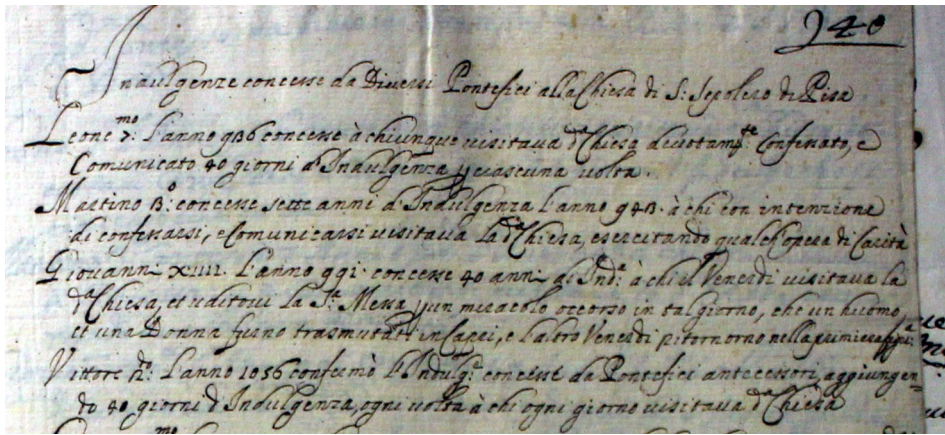 240
Indulgenze concesse da Diversi Pontefici alla Chiesa di S: Sepolcro di Pisa
Leone 7:mo L'anno 936 concesse à chiunque visitava d.a Chiesa divotam.te Confessato, e
Comunicato 40 giorni d'Indulgenza p ciascuna volta.
Martino 3:o concesse sette anni d'Indulgenza l'anno 943. à chi con intenzione
di confessarsi, e Comunicarsi visitava la d.a Chiesa, esercitando qualch'opera di Carità
Giovanni XIIII. L'anno 991. concesse 40 anni di Ind.a à chi el Venerdi visitava la
d.a Chiesa, et uditovi la S.ta Messa p un miracolo occorso in tal giorno, che un huomo,
et una Donna furno trasmutati in Capri, e l'altro Venerdi ritornorno nella primiera
Vittore L'anno 1056 confermò l'Indulg.e concesse da Pontefici antecessori, aggiungen-
do 40 giorni d'Indulgenza, ogni volta à chi ogni giorno visitava d.a Chiesa